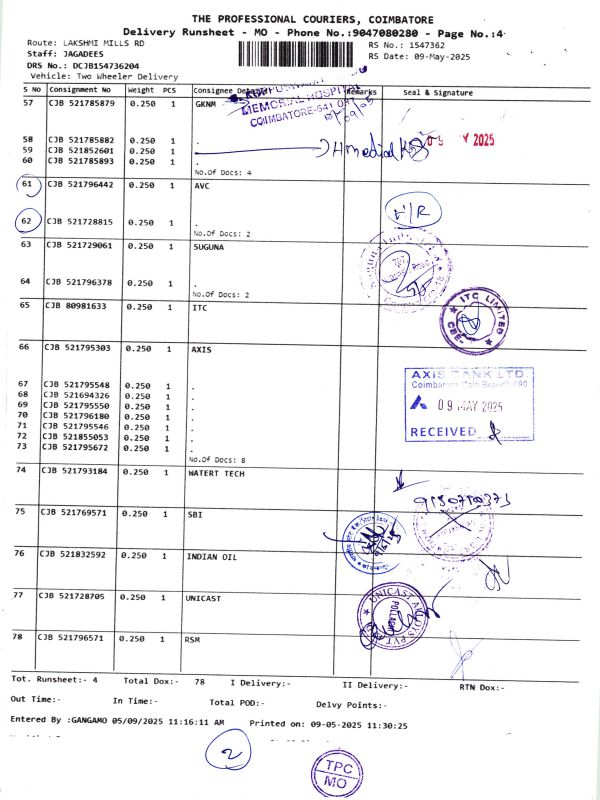 THE PROFESSIONAL COURIERS, COIMBATORE
Delivery Runsheet - MO - Phone No.:9047080280 - Page No.:4
Route: LAKSHMI MILLS RD
RS No.: 1547362
Staff: JAGADEES
RS Date: 09-May-2025
DRS No.: DCJB154736204
Vehicle: Two Wheeler Delivery
S No Consignment No Weight PCS Consignee Remarks Seal & Signature
57 CJB 521785879 0.250 1 GKNM
MEMORIAL HOSPITAL
COIMBATORE-641 037
58 CJB 521785882 0.250 1 .
09 MAY 2025
59 CJB 521852601 0.250 1 .
60 CJB 521785893 0.250 1 .
No.Of Docs: 4
61 CJB 521796442 0.250 1 AVC
62 CJB 521728815 0.250 1 .
No.Of Docs: 2
63 CJB 521729061 0.250 1 SUGUNA
64 CJB 521796378 0.250 1 .
No.Of Docs: 2
65 CJB 80981633 0.250 1 ITC
ITC LIMITED
CBE
66 CJB 521795303 0.250 1 AXIS
AXIS BANK LTD.
Coimbatore Main Branch 090
09 MAY 2025
RECEIVED
67 CJB 521795548 0.250 1 .
68 CJB 521694326 0.250 1 .
69 CJB 521795550 0.250 1 .
70 CJB 521796180 0.250 1 .
71 CJB 521795546 0.250 1 .
72 CJB 521855053 0.250 1 .
73 CJB 521795672 0.250 1 .
No.Of Docs: 8
74 CJB 521793184 0.250 1 WATERT TECH
75 CJB 521769571 0.250 1 SBI
76 CJB 521832592 0.250 1 INDIAN OIL
77 CJB 521728705 0.250 1 UNICAST
UNICAST
78 CJB 521796571 0.250 1 RSM
Tot. Runsheet:- 4 Total Dox:- 78 I Delivery:- II Delivery:- RTN Dox:-
Out Time:- In Time:- Total POD:- Delvy Points:-
Entered By :GANGAMO 05/09/2025 11:16:11 AM Printed on: 09-05-2025 11:30:25
2
TPC
MO